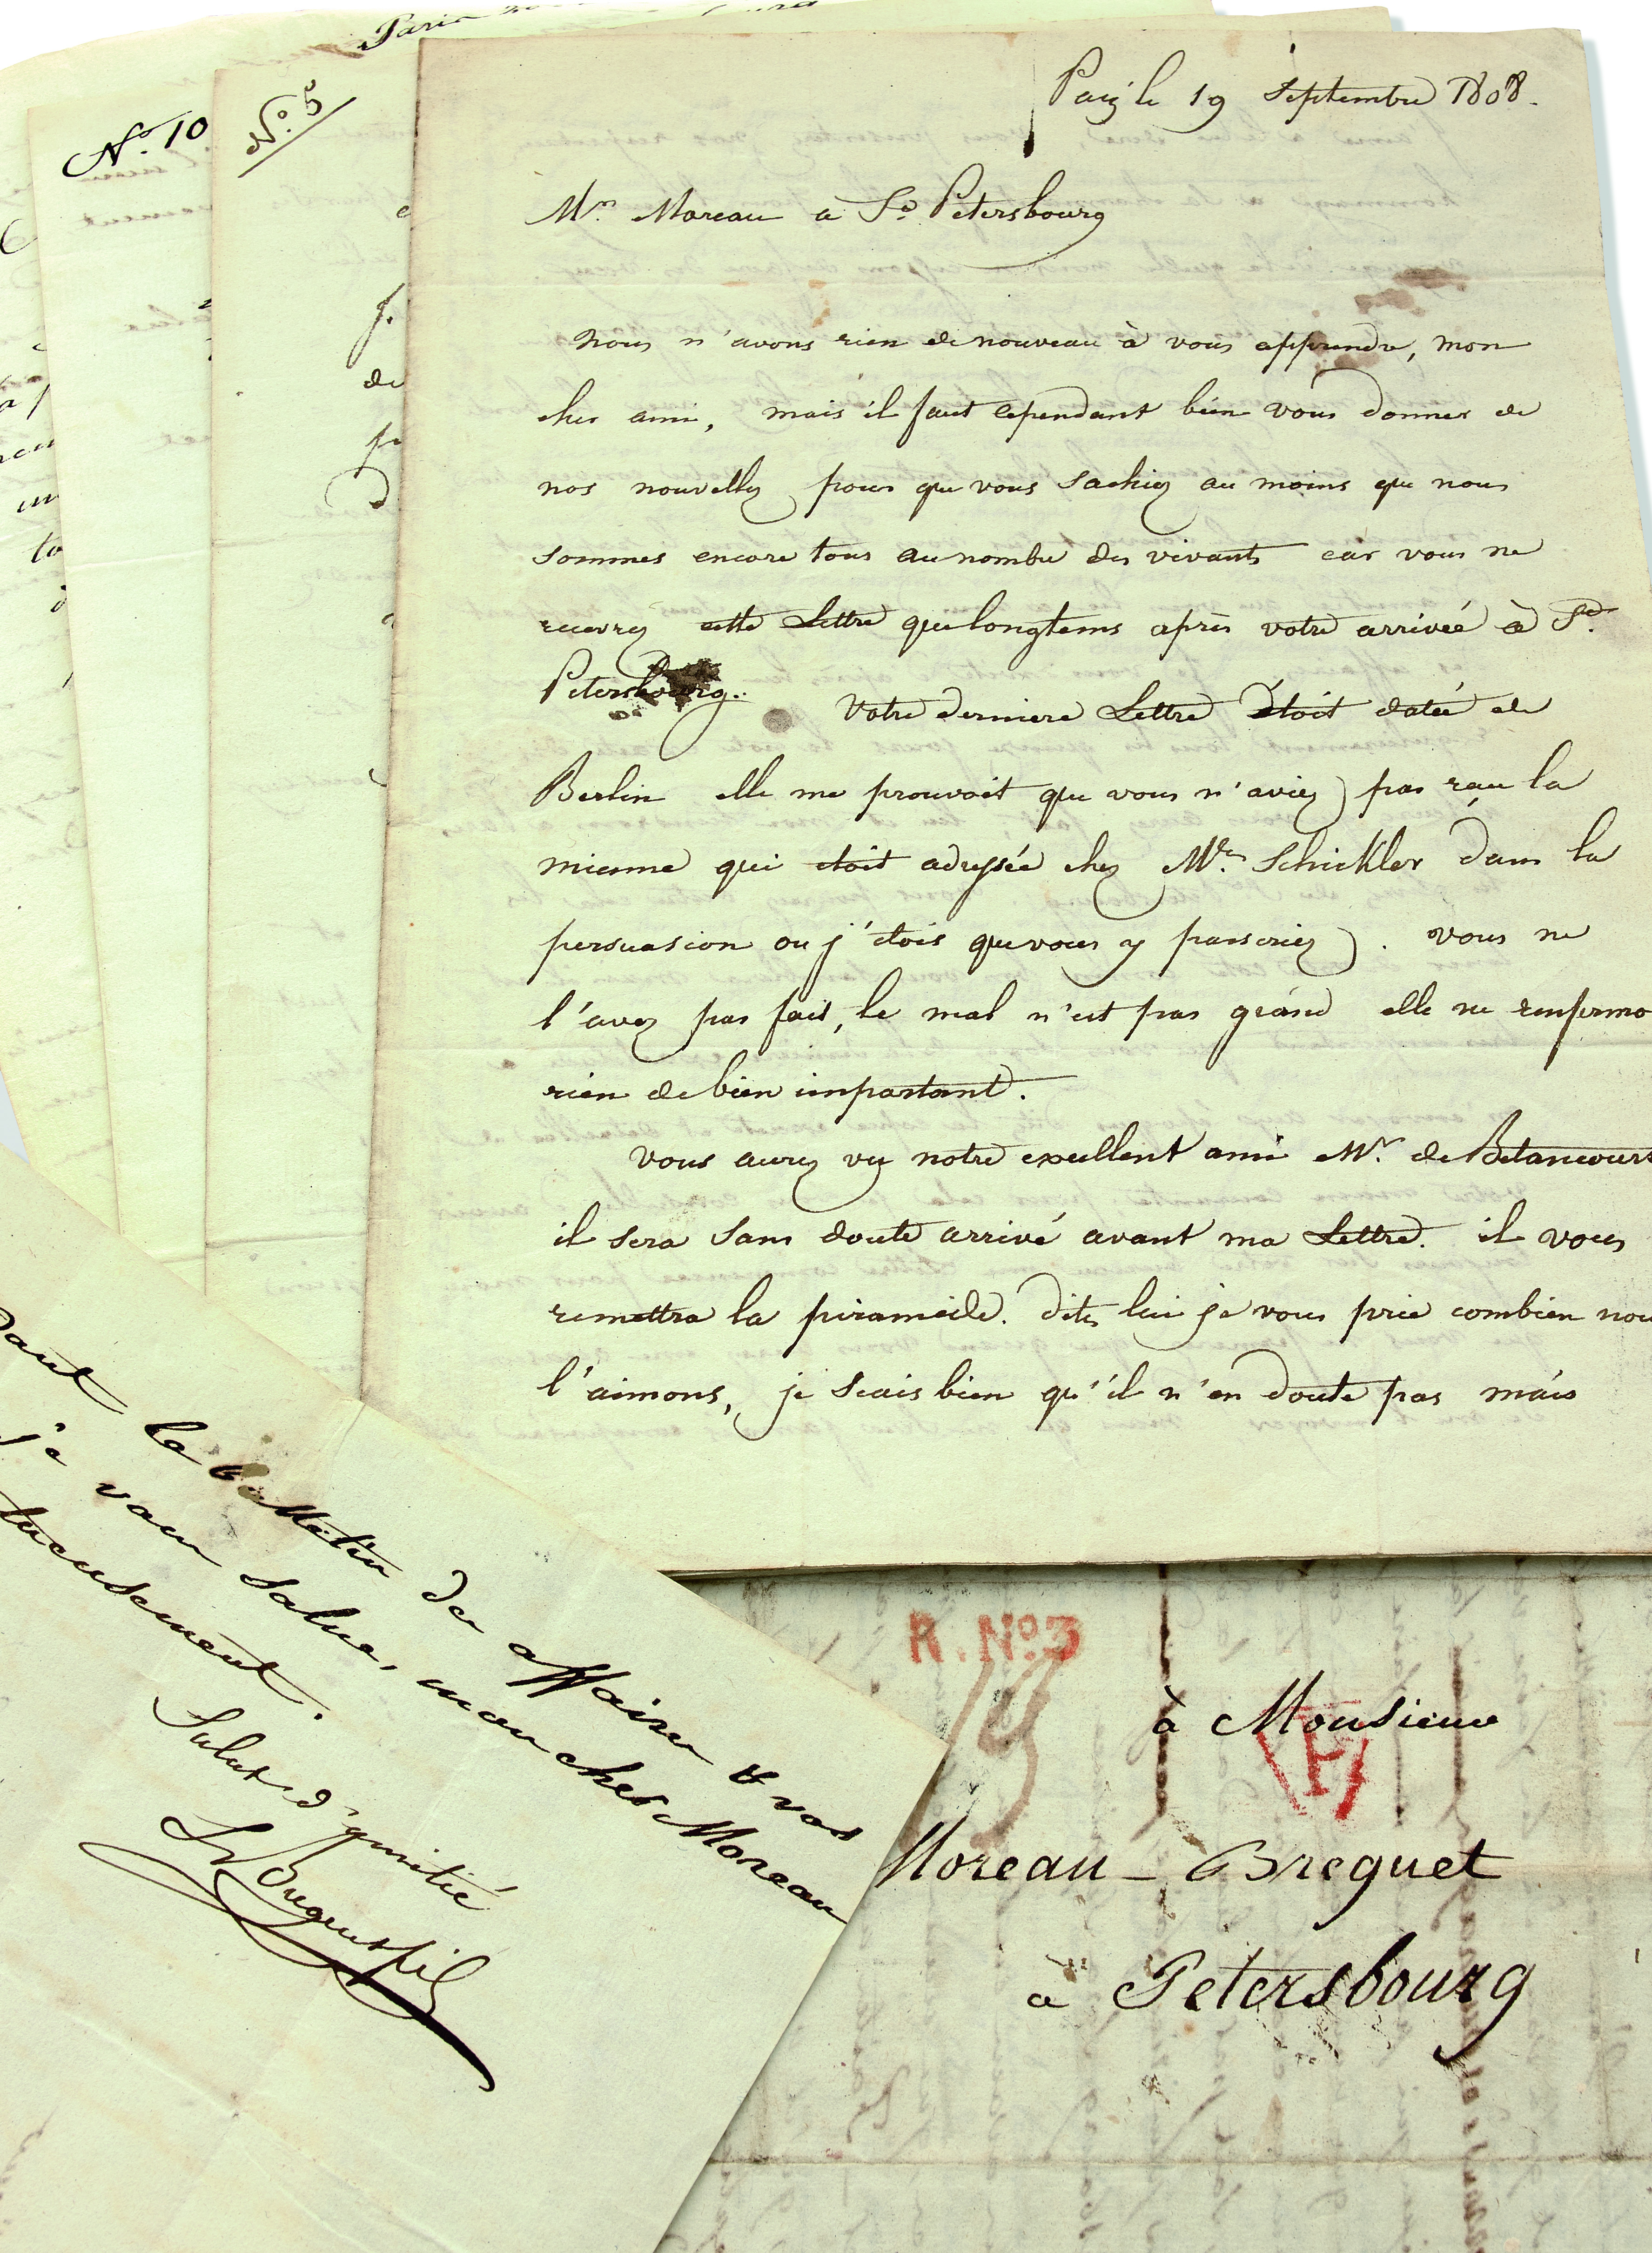 Paris
N.° 10
N.° 5
de
Paris le 19 Septembre 1808.
Mr. Moreau a St. Petersbourg
Nous n'avons rien de nouveau à vous apprendre, mon
cher ami, mais il faut cependant bien vous donner de
nos nouvelles pour que vous sachiez au moins que nous
sommes encore tous au nombre des vivants car vous ne
recevrez cette Lettre que longtems après votre arrivée à St.
Petersbourg. Votre derniere Lettre étoit datée de
Berlin elle me prouvoit que vous n'aviez pas reçu la
mienne qui étoit adressée chez Mrs. Schickler dans la
persuasion ou j'étois que vous y passeriez. vous ne
l'avez pas fait, le mal n'est pas grand elle ne renfermo
rien de bien important.
vous aurez vu notre excellent ami Mr. de Betancourt
il sera sans doute arrivé avant ma Lettre. il vous
remettra la piramide. dites lui je vous prie combien nou
l'aimons, je scais bien qu'il n'en doute pas mais
dant le bulletin de affaires & vos
je vous salue, mon cher Moreau
tueusement.
Salut d'amitié
R. N.° 3
à Monsieur
P
Moreau - Breguet
à Petersbourg